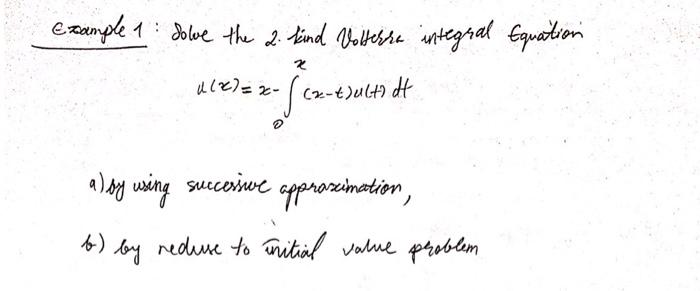 Example 1 : Solve the 2. kind Volterra integral Equation
u(x) = x - ∫₀ˣ (x-t)u(t) dt
a) by using successive approximation,
b) by reduse to initial value problem